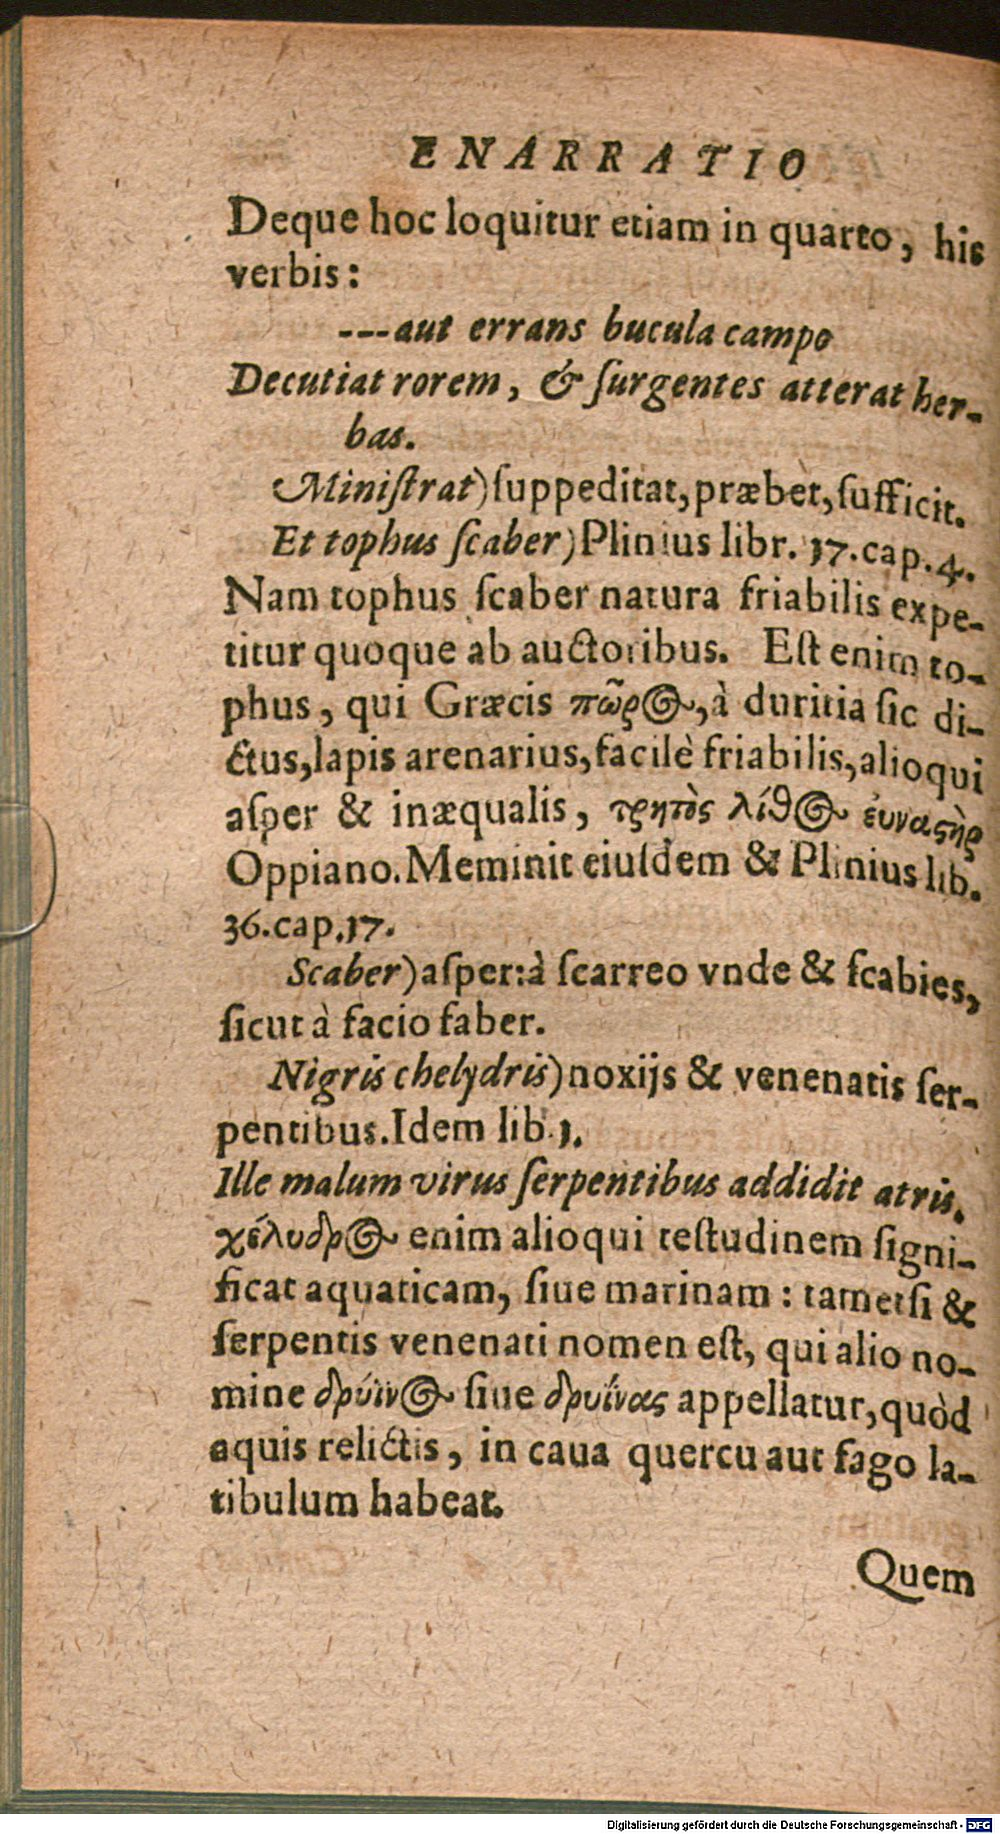 ENARRATIO
Deque hoc loquitur etiam in quarto, his
verbis:
---aut errans bucula campo
Decutiat rorem, & ſurgentes atterat her-
bas.
Miniſtrat) ſuppeditat, præbet, ſufficit.
Et tophus ſcaber) Plinius libr. 17. cap. 4.
Nam tophus ſcaber natura friabilis expe-
titur quoque ab auctoribus. Eſt enim to-
phus, qui Græcis πῶρος, à duritia ſic di-
ctus, lapis arenarius, facilè friabilis, alioqui
aſper & inæqualis, τρητὸς λίθος εὐναστὴρ
Oppiano. Meminit eiuſdem & Plinius lib.
36. cap. 17.
Scaber) aſper: à ſcarreo vnde & ſcabies,
ſicut à facio faber.
Nigris chelydris) noxijs & venenatis ſer-
pentibus. Idem lib. 1.
Ille malum virus ſerpentibus addidit atris.
χέλυδρος enim alioqui teſtudinem ſigni-
ficat aquaticam, ſiue marinam: tametſi &
ſerpentis venenati nomen eſt, qui alio no-
mine δρύϊνος ſiue δρυΐνας appellatur, quòd
aquis relictis, in caua quercu aut fago la-
tibulum habeat.
Quem
Digitalisierung gefördert durch die Deutsche Forschungsgemeinschaft - DFG